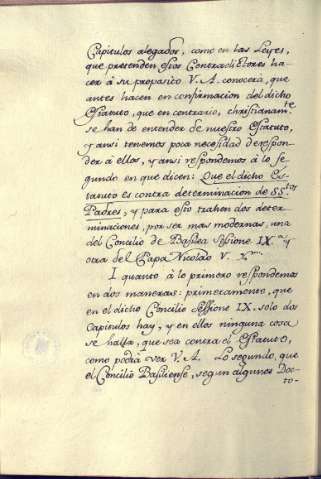 Capitulos alegados, como en las Leyes,
que pretenden estos Contradictores ha-
cer á su proposito V. A. conocerá, que
antes hacen en confirmacion del dicho
Estatuto, que en contrario, christianam.te
se han de entender de nuestro Estatuto,
y ansi tenemos poca necesidad de respon-
der á ellos, y ansi respondemos á lo se-
gundo en que dicen: Que el dicho Es-
tatuto es contra determinacion de SS.tos
Padres, y para esto trahen dos deter-
minaciones, por ser mas modernas, una
del Concilio de Basilea Sessione IX.a y
otra del Papa Nicolao V.
I quanto á lo primero respondemos
en dos maneras: primeramente, que
en el dicho Concilio Sessione IX. solo dos
Capitulos hay, y en ellos ninguna cosa
se halla, que sea contra el Estatuto,
como podrá ver V. A. Lo segundo, que
el Concilio Basiliense, segun algunos Doc-
to-